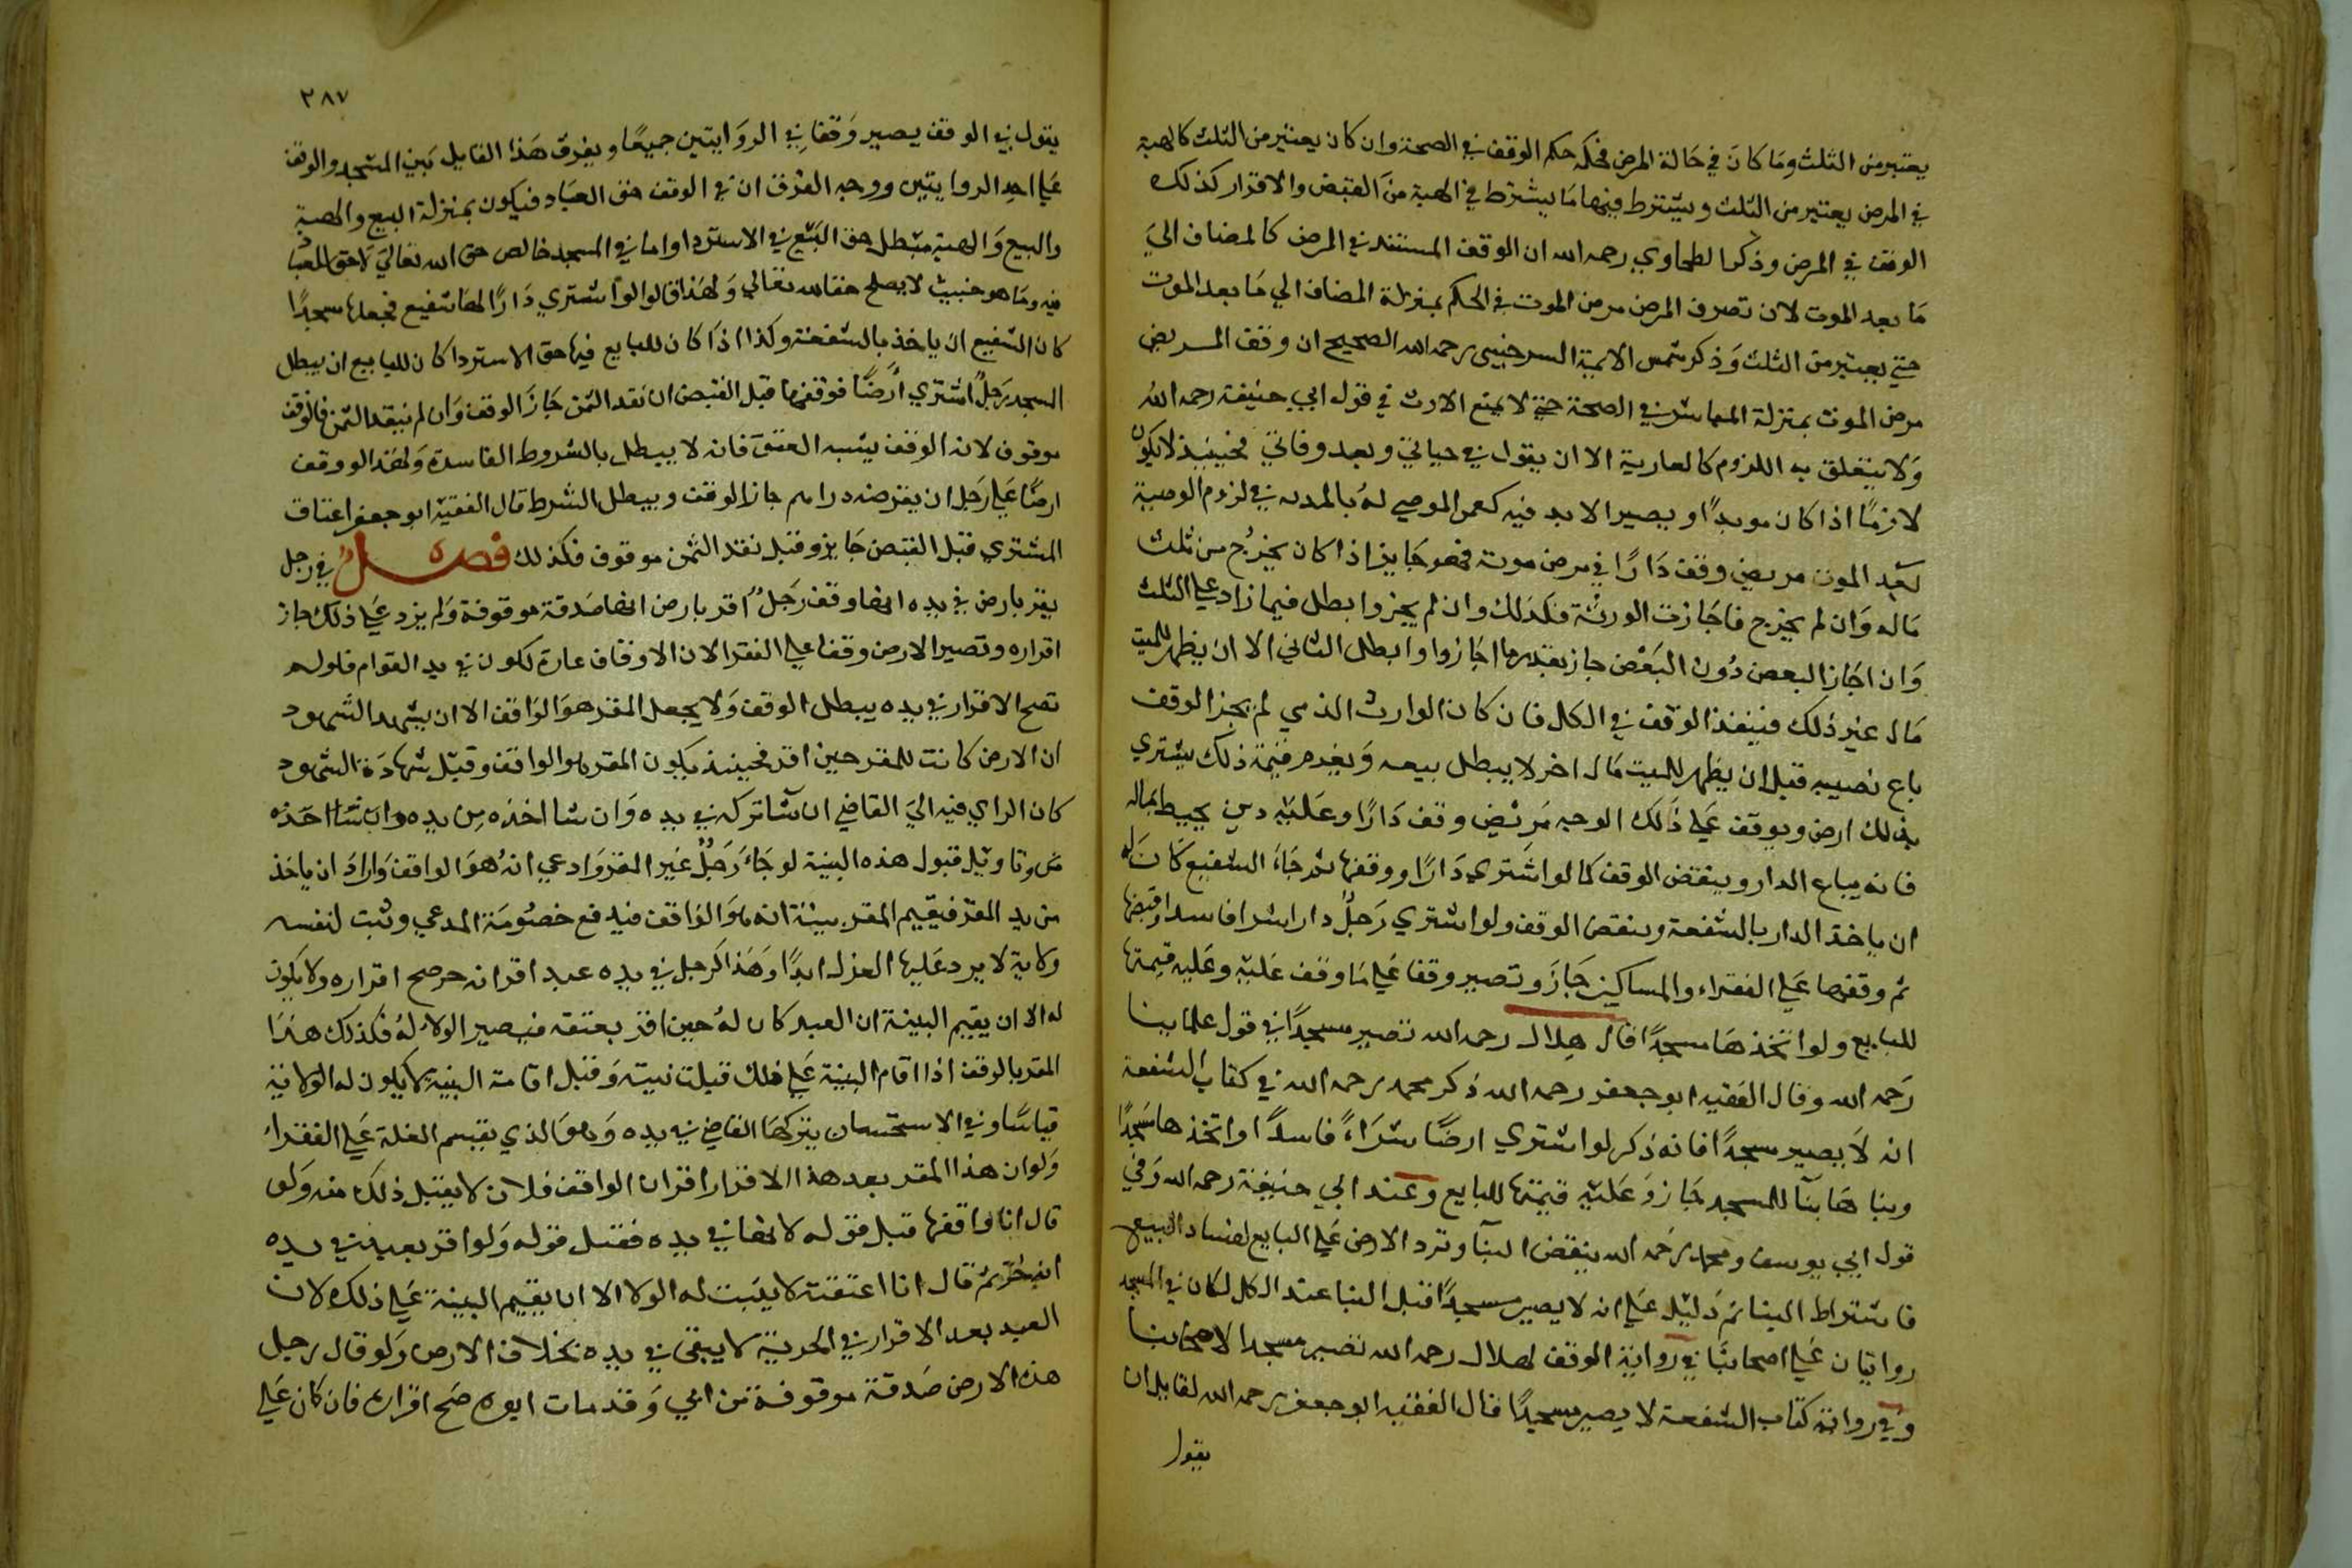 يعتبر من الثلث وما كان في حالة المرض فحكمه حكم الوقف في الصحة وان كان يعتبر من الثلث كالهبة
في المرض يعتبر من الثلث ويشترط فيها ما يشترط في الهبة من القبض والاقرار كذلك
الوقف في المرض وذكر الطحاوي رحمه الله ان الوقف المستنفد في المرض كالمضاف الي
ما بعد الموت لان تصرف المرض مرض الموت في الحكم بمنزلة المضاف الي ما بعد الموت
حتي يعتبر من الثلث وذكر شمس الايمة السرخسي رحمه الله الصحيح ان وقف المريض
مرض الموت بمنزلة المباشر في الصحة حتي لا يمنع الارث في قول ابي حنيفة رحمه الله
ولا يتعلق به اللزوم كالعارية الا ان يقول في حياتي وبعد وفاتي فحينيذ لا يكون
لازما اذا كان موبدا ويصير الابد فيه كعمر الموصي له بالمدبه في لزوم الوصية
بعد الموت مريض وقف دارا في مرض موته فهو جايز اذا كان يخرج من ثلث
ماله وان لم يخرج فاجازت الورثة فكذلك وان لم يجيزوا بطل فيما زاد علي الثلث
وان اجاز البعض دون البعض جاز بقدر ما اجازوا وابطل الثاني الا ان يظهر للميت
مال غير ذلك فينفذ الوقف في الكل فان كان الوارث الذي لم يجز الوقف
باع نصيبه قبل ان يظهر للميت مال اخر لا يبطل بيعه ويغرم قيمة ذلك يشتري
بذلك ارض ويوقف علي ذلك الوجه مريض وقف دارا وعليه دين يحيط بماله
فانه يباع الدار وينقض الوقف كما لو اشتري دارا ووقفها ثم جاء الشفيع كان له
ان ياخذ الدار بالشفعة وينقض الوقف ولو اشتري رجل دارا شرا فاسدا وقبضها
ثم وقفها علي الفقراء والمساكين جاز وتصير وقفا علي ما وقف عليه وعليه قيمتها
للبايع ولو اتخذها مسجدا قال هلال رحمه الله تصير مسجدا في قول علماينا
رحمه الله وقال الفقيه ابو جعفر رحمه الله ذكر محمد رحمه الله في كتاب الشفعة
انه لا يصير مسجدا فانه ذكر لو اشتري ارضا شراء فاسدا واتخذها مسجدا
وبناها بنا للمسجد جاز وعليه قيمتها للبايع وعند ابي حنيفة رحمه الله وفي
قول ابي يوسف ومحمد رحمه الله ينقض البنا وترد الارض علي البايع لفساد البيع
فاشتراط البنا ثم دليل علي انه لا يصير مسجدا قبل البنا عند الكل لكان في المسجد
روايتان علي اصحابنا في رواية الوقف لهلال رحمه الله تصير مسجدا لاصحابنا
وفي رواية كتاب الشفعة لا يصير مسجدا قال الفقيه ابو جعفر رحمه الله لقايل ان
يقول
٢٨٧
يقول في الوقف يصير وقفا في الروايتين جميعا ويفرق هذا القايل بين المسجد والوقف
علي احد الروايتين ووجه الفرق ان في الوقف حق العباد فيكون بمنزلة البيع والهبة
والبيع والهبة مبطل حق البيع في الاسترداد واما في المسجد خالص حق الله تعالي لا حق للعباد
فيه وما هو خبيث لا يصلح حقا لله تعالي ولهذا قالوا لو اشتري دارا لها شفيع فجعلها مسجدا
كان الشفيع ان ياخذ بالشفعة وكذا اذا كان للبايع فيها حق الاسترداد كان للبايع ان يبطل
المسجد رجل اشتري ارضا فوقفها قبل القبض ان نقد الثمن جاز الوقف وان لم ينقد الثمن فالوقف
موقوف لان الوقف يشبه العتق فانه لا يبطل بالشروط الفاسدة ولهذا لو وقف
ارضا علي رجل ان يقرضه دراهم جاز الوقف ويبطل الشرط قال الفقيه ابو جعفر اعتاق
المشتري قبل القبض جايز وقبل نقد الثمن موقوف فكذلك فصل في رجل
يقر بارض في يده انها وقف رجل اقر بارض انها صدقة موقوفة ولم يزد علي ذلك جاز
اقراره وتصير الارض وقفا علي الفقرا لان الاوقاف عادة تكون في يد القوام فلو لم
تصح الاقرار في يده يبطل الوقف ولا يجعل المقر هو الواقف الا ان يشهد الشهود
ان الارض كانت للمقر حين اقر فحينيذ يكون المقر هو الواقف وقبل شهادة الشهود
كان الراي فيه الي القاضي ان شا تركه في يده وان شا اخذه من يده وان شا اخذه
وتاويل قبول هذه البينة لو جاء رجل غير المقر وادعي انه هو الواقف واراد ان ياخذ
من يد المقر فيقيم المقر بينة انه هو الواقف فيدفع خصومة المدعي وثبت لنفسه
ولاية لا يرد عليها العزل ابدا وهذا كرجل في يده عبد اقر انه حر صح اقراره ولا يكون
له الا ان يقيم البينة ان العبد كان له حين اقر بعتقه فيصير الولا له فكذلك هذا
المقر بالوقف اذا اقام البينة علي ذلك قبلت بينته وقبل اقامة البينة لا يكون له الولاية
قياسا وفي الاستحسان يتركها القاضي في يده وهو الذي يقسم الغلة علي الفقراء
ولو ان هذا المقر بعد هذا الاقرار اقر ان الواقف فلان لا يقبل ذلك منه ولو
قال انا واقفها قبل قوله لانها في يده فقبل قوله ولو اقر بعبد في يده
انه حر ثم قال انا اعتقته لا يثبت له الولا الا ان يقيم البينة علي ذلك لان
العبد بعد الاقرار في الحرية لا يبقي في يده بخلاف الارض ولو قال رجل
هذه الارض صدقة موقوفة من ابي وقد مات ابوه صح اقراره فان كان علي